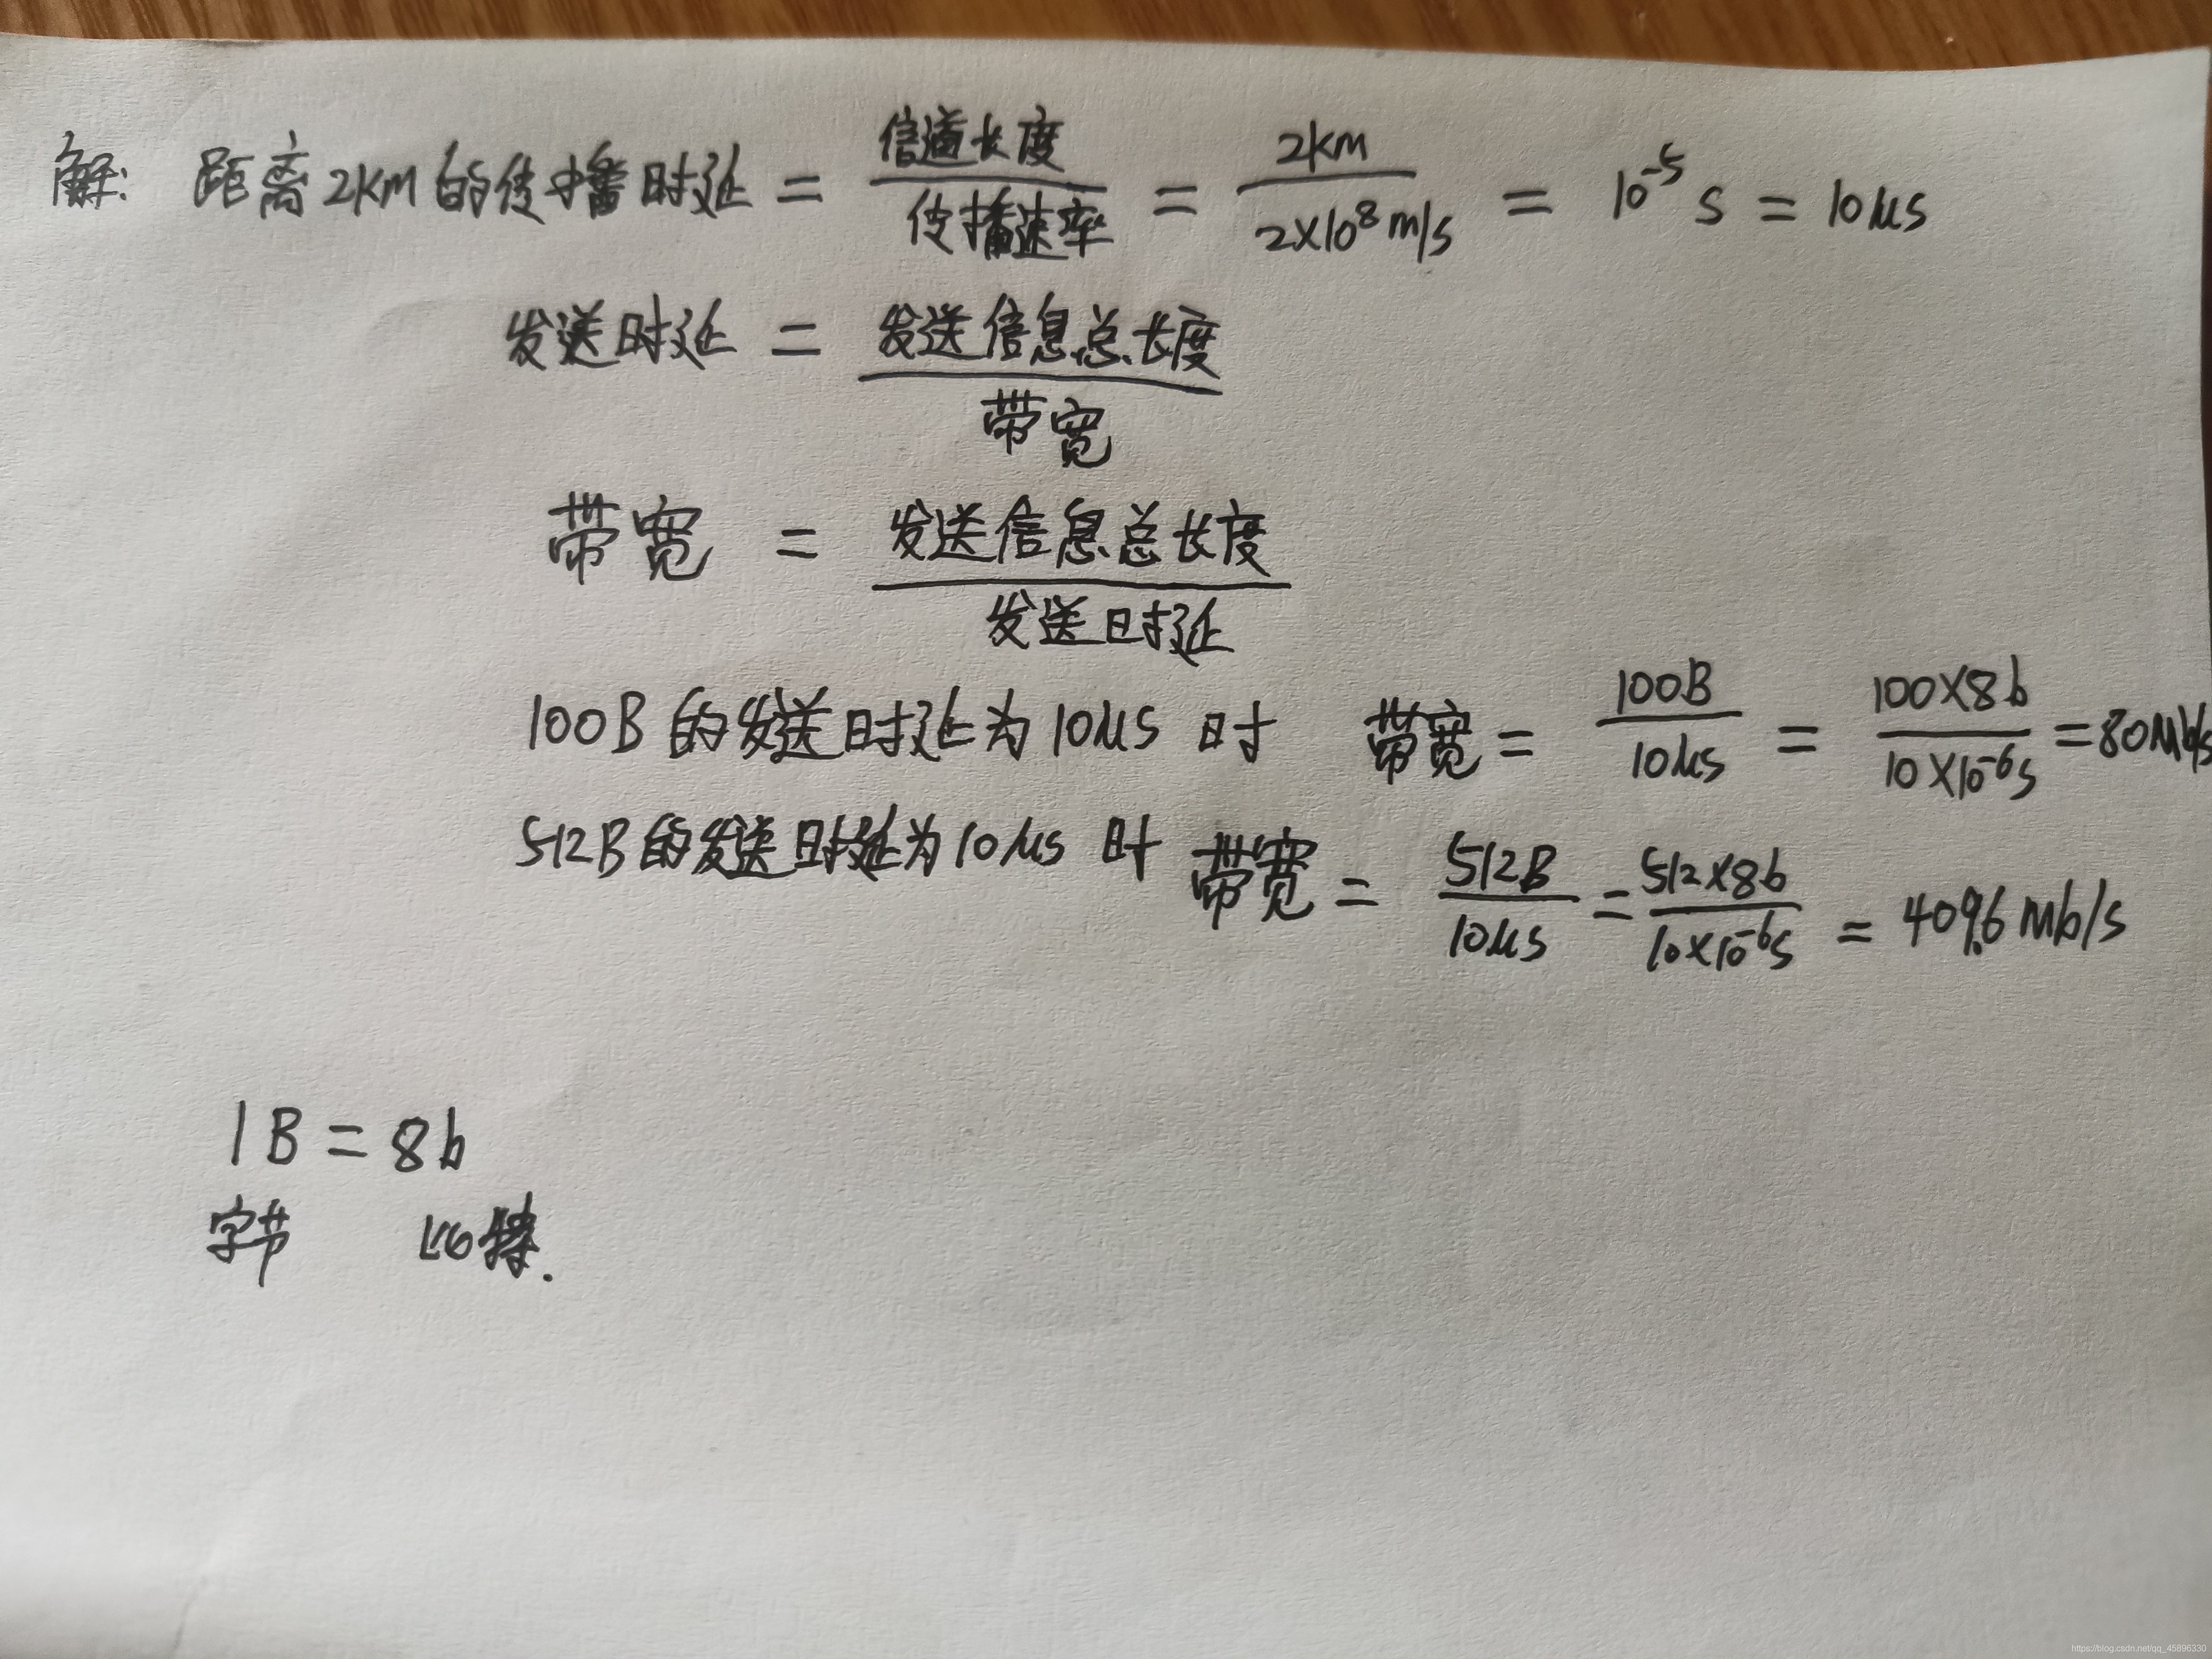 解: 距离2KM的传播时延 = 信道长度/传播速率 = 2KM/2×10⁸m/s = 10⁻⁵s = 10μs
发送时延 = 发送信息总长度/带宽
带宽 = 发送信息总长度/发送时延
100B的发送时延为10μs时 带宽 = 100B/10μs = 100×8b/10×10⁻⁶s = 80Mb/s
512B的发送时延为10μs时 带宽 = 512B/10μs = 512×8b/10×10⁻⁶s = 409.6Mb/s
1B = 8b
字节 比特.
https://blog.csdn.net/qq_45896330